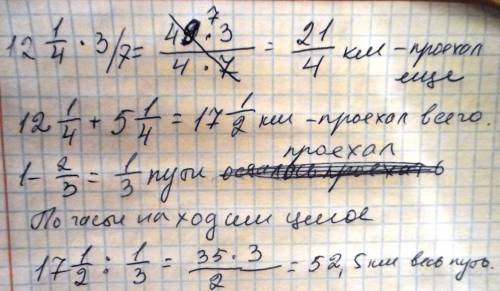 12 1/4 · 3/7 = 49 · 3 / 4 · 7 = 21/4 км - проехал
7
еще
12 1/4 + 5 1/4 = 17 1/2 км - проехал всего.
1 - 2/3 = 1/3 пути проехал
По части находим целое
17 1/2 : 1/3 = 35 · 3 / 2 = 52,5 км весь путь.